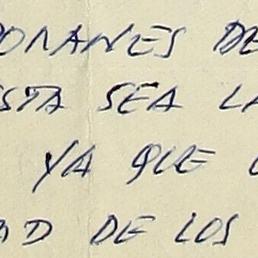 ORANES DE
STA SEA LA
YA QUE
AD DE LOS